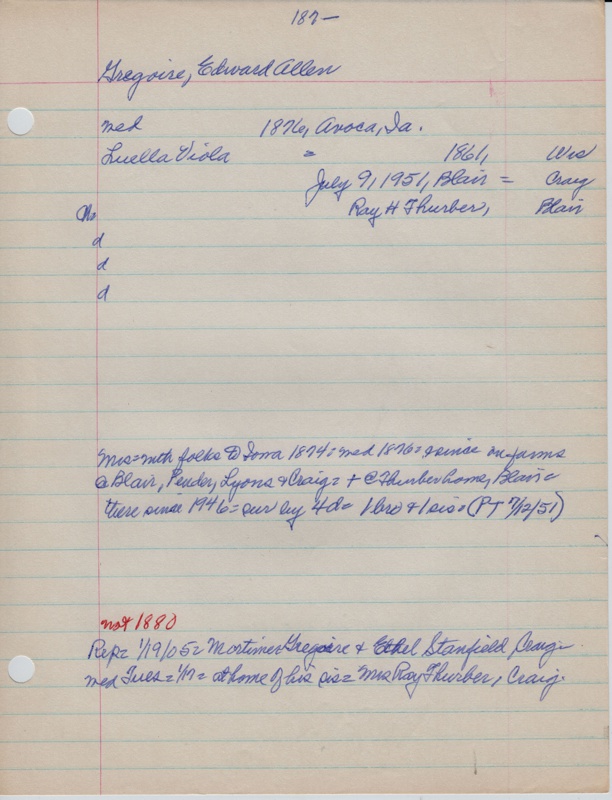 187-
Gregoire, Edward Allen
med 1876, Avoca, Ia.
Luella Viola = 1861, Wis
July 9, 1951, Blair = Craig
Ray H Thurber, Blair
Ch
d
d
d
Mrs = with folks to Iowa 1874 = med 1876 = & since on farms
@ Blair, Pender, Lyons & Craig = + @ Thurber home, Blair =
there since 1946 = sur by 4d = 1 bro & 1 sis = (PT 7/12/51)
not 1880
Rep = 1/19/05 = Mortimer Gregoire & Ethel Stanfield Craig
med Tues = 1/17 = at home of his sis = Mrs Ray Thurber, Craig.